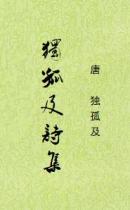 唐 独孤及
獨孤及詩集